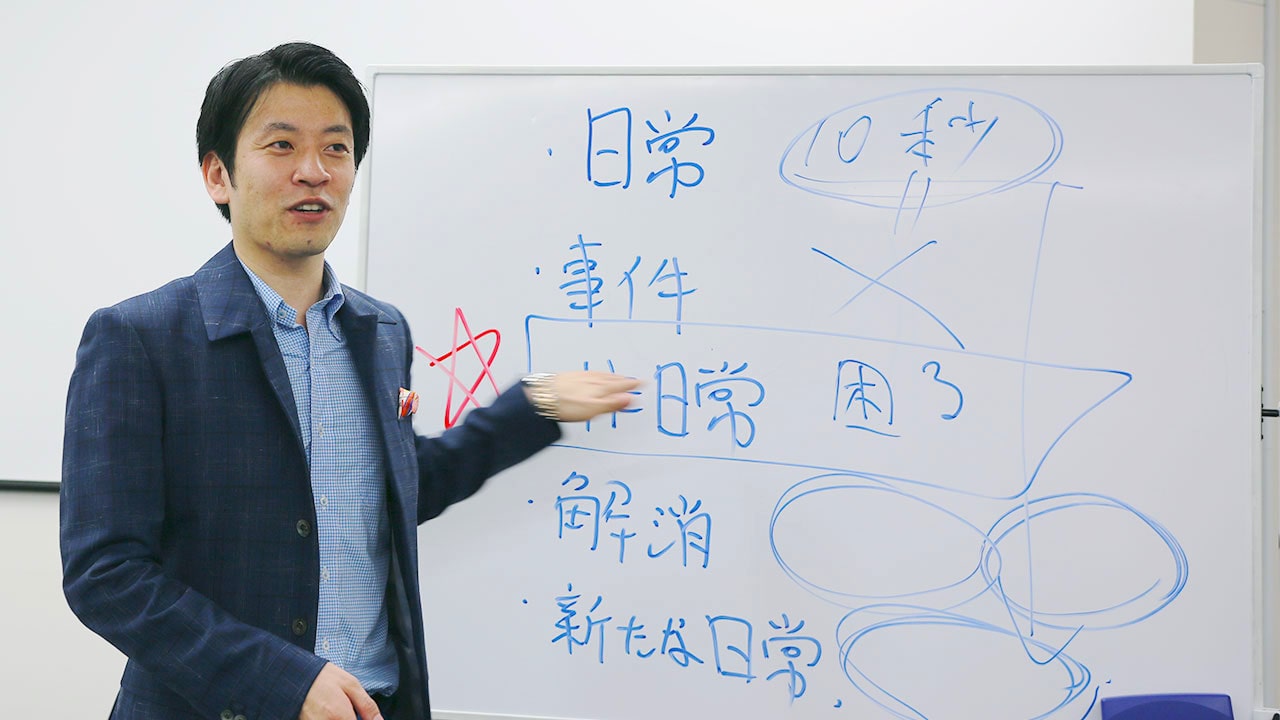 ・日常 10秒
・事件
非日常 困る
・解消
・新たな日常